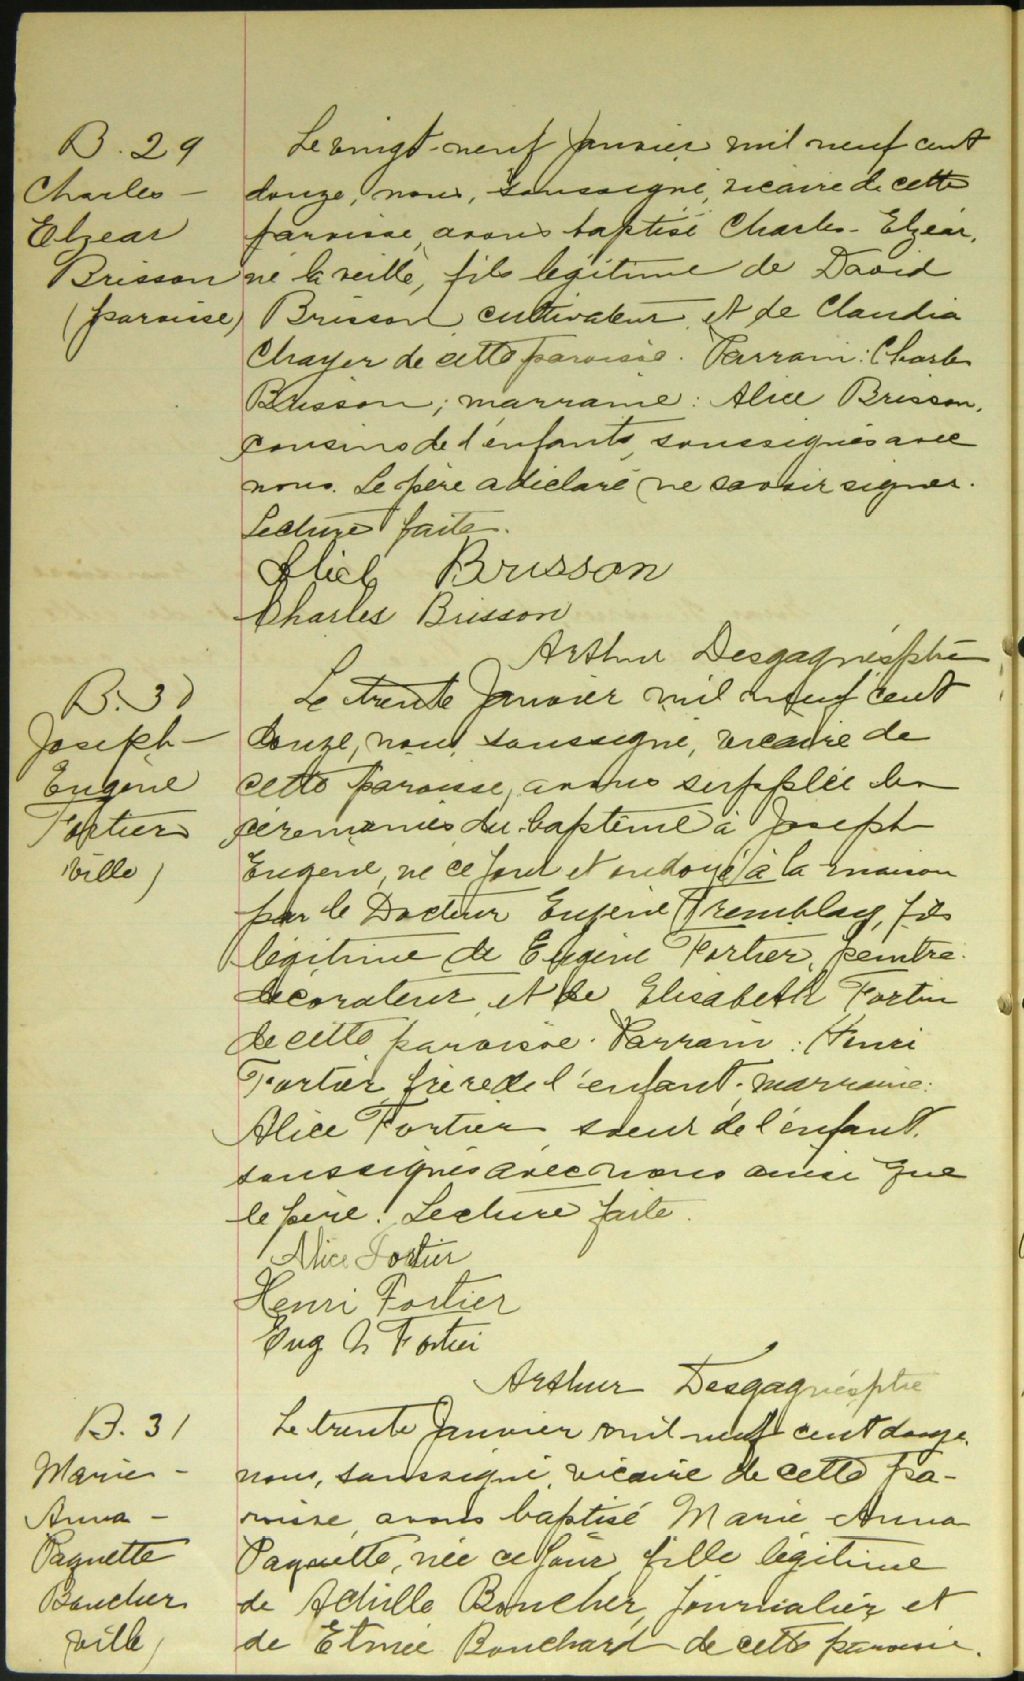 B. 29
Charles-
Elzear
Brisson
(paroisse)
Le vingt-neuf Janvier mil neuf cent
douze, nous, soussigné, vicaire de cette
paroisse, avons baptisé Charles-Elzéar,
né la veille, fils légitime de David
Brisson, cultivateur, et de Claudia
Chayer de cette paroisse. Parrain: Charles
Brisson; marraine: Alice Brisson,
cousins de l'enfant, soussignés avec
nous. Le père a déclaré ne savoir signer.
Lecture faite.
Alice Brisson
Charles Brisson
Arthur Desgagnés ptre
B. 30
Joseph-
Eugène
Fortier
ville)
Le trente Janvier mil neuf cent
douze, nous, soussigné, vicaire de
cette paroisse, avons supplée les
cérémonies du baptême à Joseph
Eugène, né ce jour et ondoyé à la maison
par le Docteur Eugène Tremblay, fils
légitime de Eugène Fortier, peintre-
décorateur, et de Elisabeth Fortin
de cette paroisse. Parrain: Henri
Fortier, frère de l'enfant; marraine:
Alice Fortier soeur de l'enfant,
soussignés avec nous ainsi que
le père. Lecture faite.
Alice Fortier
Henri Fortier
Eug Fortier
Arthur Desgagnés ptre
B. 31
Marie-
Anna-
Paquette
Boucher
ville)
Le trente Janvier mil neuf cent douze,
nous, soussigné, vicaire de cette pa-
roisse, avons baptisé Marie Anna
Paquette, née ce jour, fille légitime
de Achille Boucher, journalier et
de Bouchard de cette paroisse.